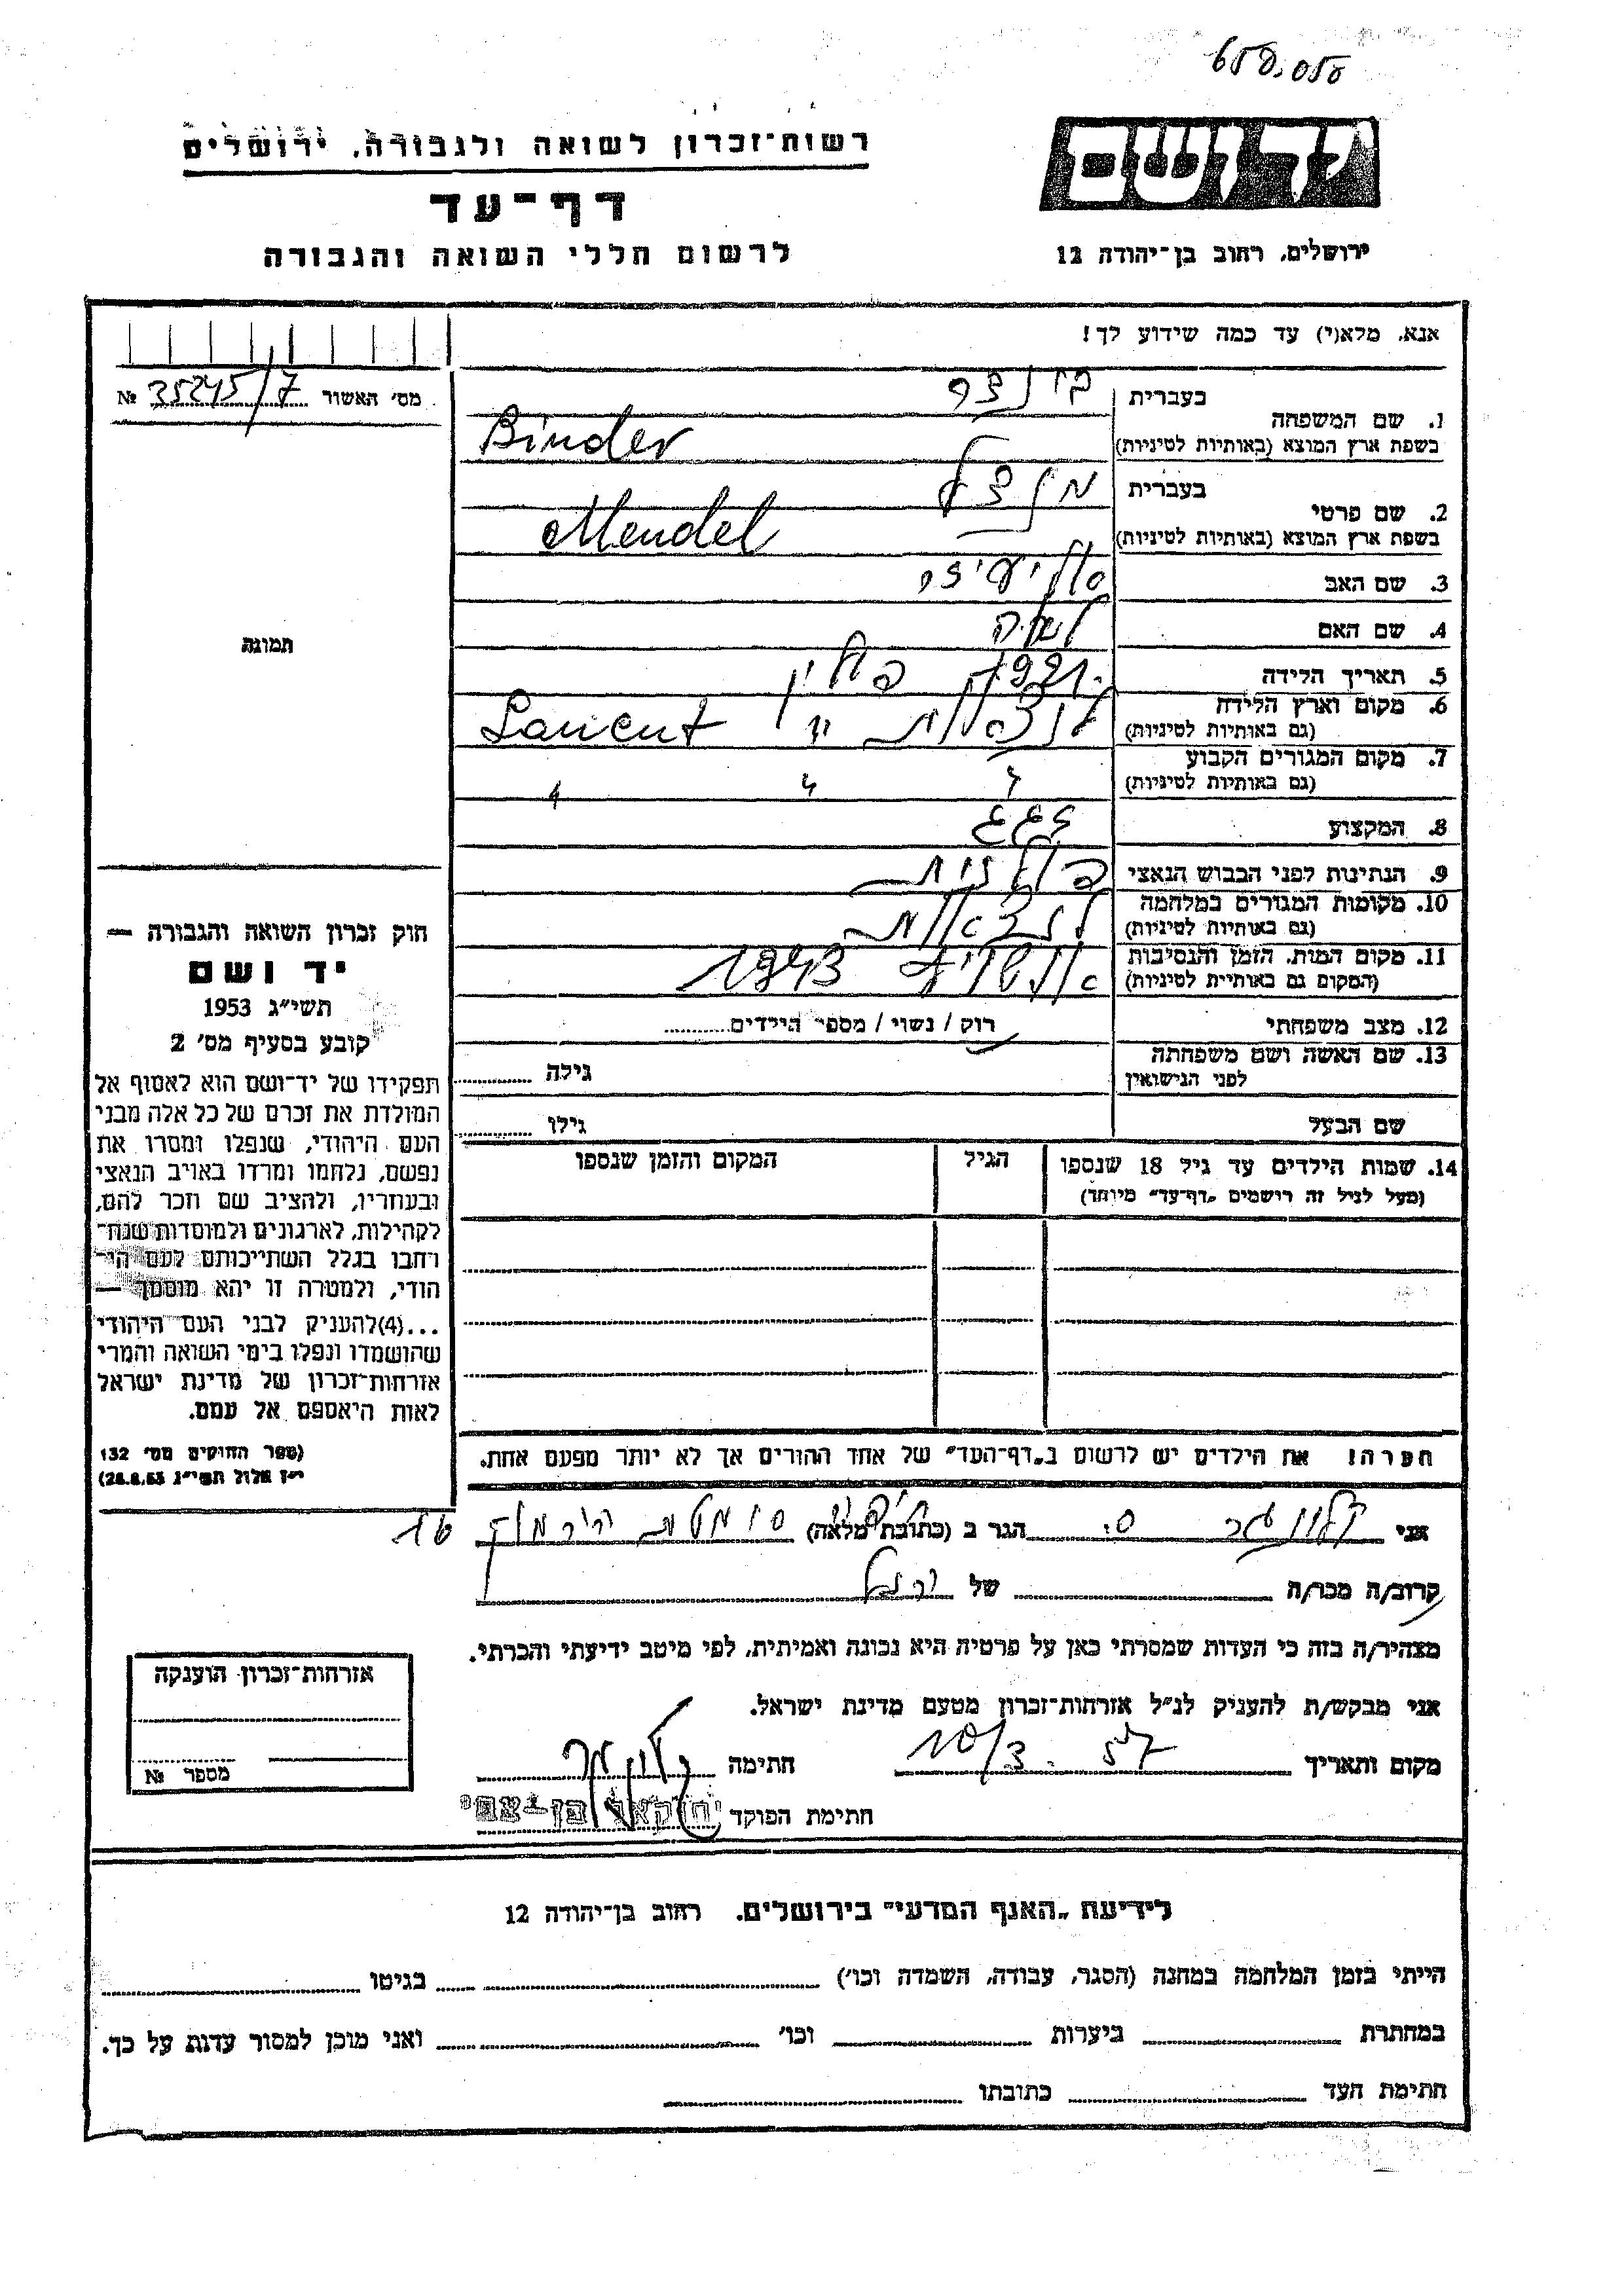 רשות־זכרון לשואה ולגבורה, ירושלים
דף־עד
לרשום חללי השואה והגבורה
ירושלים, רחוב בן־יהודה 12
אנא, מלא(י) עד כמה שידוע לך!
מס' האשור № 35245/7
1. שם המשפחה בעברית בינדר
בשפת ארץ המוצא (באותיות לטיניות) Binder
2. שם פרטי בעברית מנדל
בשפת ארץ המוצא (באותיות לטיניות) Mendel
3. שם האב
4. שם האם
5. תאריך הלידה 1921
6. מקום וארץ הלידה
(גם באותיות לטיניות)
7. מקום המגורים הקבוע
(גם באותיות לטיניות)
8. המקצוע
9. הנתינות לפני הכבוש הנאצי פולנית
10. מקומות המגורים במלחמה
(גם באותיות לטיניות)
11. מקום המות, הזמן והנסיבות 1943
(המקום גם באותיות לטיניות)
12. מצב משפחתי רוק / נשוי / מספר הילדים
13. שם האשה ושם משפחתה גילה
לפני הנישואין
שם הבעל גילו
14. שמות הילדים עד גיל 18 שנספו הגיל המקום והזמן שנספו
(מעל לגיל זה רושמים "דף־עד" מיוחד)
הערה! את הילדים יש לרשום ב"דף־העד" של אחד ההורים אך לא יותר מפעם אחת.
תמונה
חוק זכרון השואה והגבורה —
יד ושם
תשי"ג 1953
קובע בסעיף מס' 2
תפקידו של יד־ושם הוא לאסוף אל
המולדת את זכרם של כל אלה מבני
העם היהודי, שנפלו ומסרו את
נפשם, נלחמו ומרדו באויב הנאצי
ובעוזריו, ולהציב שם וזכר להם,
לקהילות, לארגונים ולמוסדות שנח־
רבו בגלל השתייכותם לעם הי־
הודי, ולמטרה זו יהא מוסמך —
...(4) להעניק לבני העם היהודי
שהושמדו ונפלו בימי השואה והמרי
אזרחות־זכרון של מדינת ישראל
לאות היאספם אל עמם.
(ספר החוקים מס' 132
י"ז אלול תשי"ג 28.8.53)
אני הגר ב (כתובת מלאה) 16
קרוב/ה מכר/ה של
מצהיר/ה בזה כי העדות שמסרתי כאן על פרטיה היא נכונה ואמיתית, לפי מיטב ידיעתי והכרתי.
אני מבקש/ת להעניק לנ"ל אזרחות־זכרון מטעם מדינת ישראל.
מקום ותאריך חתימה
חתימת הפוקד
אזרחות־זכרון הוענקה
מספר №
לידיעת "האגף המדעי" בירושלים, רחוב בן־יהודה 12
הייתי בזמן המלחמה במחנה (הסגר, עבודה, השמדה וכו') בגיטו
במחתרת ביערות וכו' ואני מוכן למסור עדות על כך.
חתימת העד כתובתו